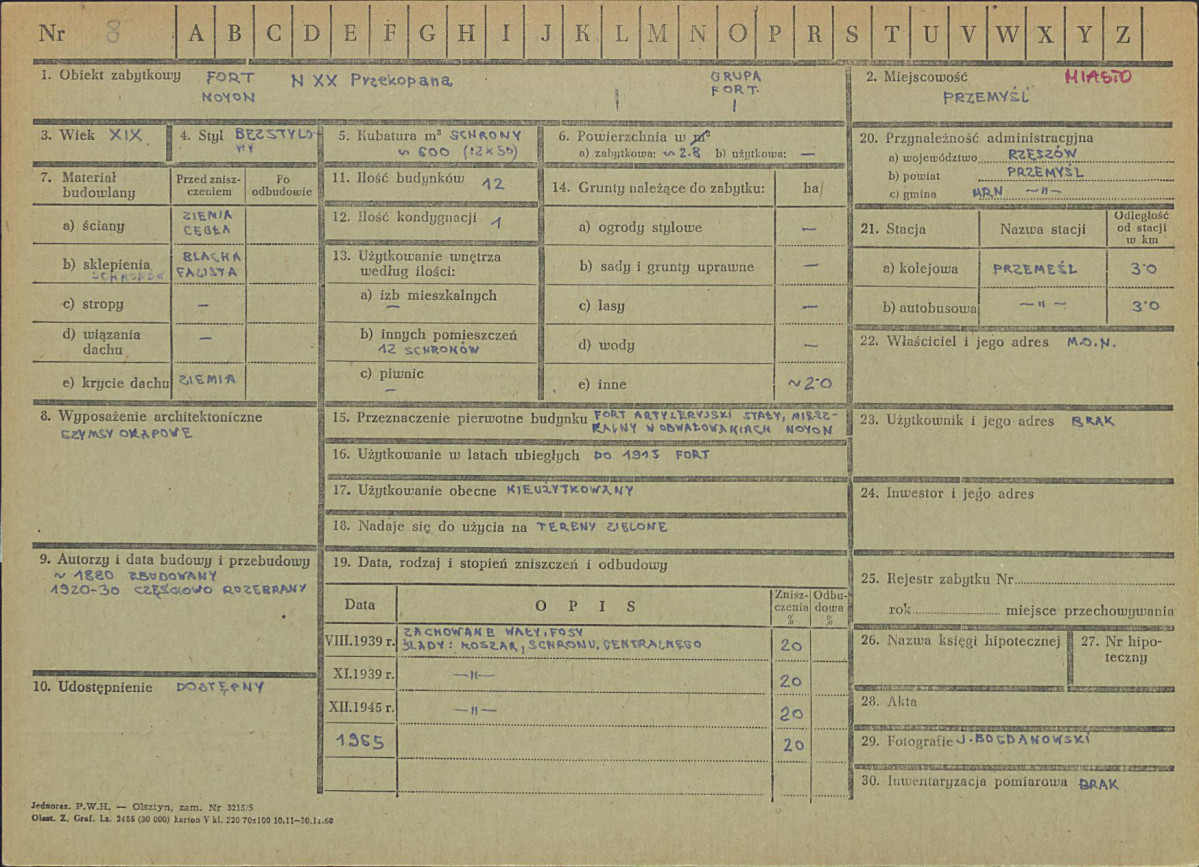 Nr 8 A B C D E F G H I J K L M N O P R S T U V W X Y Z
1. Obiekt zabytkowy FORT N XX Przekopana, GRUPA
NOYON FORT. I
2. Miejscowość MIASTO
PRZEMYŚL
3. Wiek XIX
4. Styl BEZSTYLO-
WY
5. Kubatura m³ SCHRONY
~ 600 (12×50)
6. Powierzchnia w m²
a) zabytkowa: ~2.8 b) użytkowa: —
20. Przynależność administracyjna
a) województwo RZESZÓW
b) powiat PRZEMYŚL
c) gmina MRN —"—
7. Materiał
budowlany
Przed znisz-
czeniem
Po
odbudowie
a) ściany ZIEMIA
CEGŁA
b) sklepienia BLACHA
SCHRONÓW FALISTA
c) stropy —
d) wiązania —
dachu
e) krycie dachu ZIEMIA
11. Ilość budynków 12
12. Ilość kondygnacji 1
13. Użytkowanie wnętrza
według ilości:
a) izb mieszkalnych
—
b) innych pomieszczeń
12 SCHRONÓW
c) piwnic
—
14. Grunty należące do zabytku: ha
a) ogrody stylowe —
b) sady i grunty uprawne —
c) lasy —
d) wody —
e) inne ~2·0
21. Stacja Nazwa stacji Odległość
od stacji
w km
a) kolejowa PRZEMEŚL 3·0
b) autobusowa —"— 3·0
22. Właściciel i jego adres M.O.N.
8. Wyposażenie architektoniczne
GZYMSY OKAPOWE
15. Przeznaczenie pierwotne budynku FORT ARTYLERYJSKI STAŁY, MIESZ-
KALNY W OBWAŁOWANIACH NOYON
16. Użytkowanie w latach ubiegłych DO 1915 FORT
17. Użytkowanie obecne NIEUŻYTKOWANY
18. Nadaje się do użycia na TERENY ZIELONE
23. Użytkownik i jego adres BRAK
24. Inwestor i jego adres
9. Autorzy i data budowy i przebudowy
~ 1880 ZBUDOWANY
1920-30 CZĘŚCIOWO ROZEBRANY
10. Udostępnienie DOSTĘPNY
19. Data, rodzaj i stopień zniszczeń i odbudowy
Data OPIS Znisz-
czenia
%
Odbu-
dowa
%
VIII.1939 r. ZACHOWANE WAŁY, FOSY
ŚLADY: KOSZAR, SCHRONU, CENTRALNEGO 20
XI.1939 r. —"— 20
XII.1945 r. —"— 20
1965 20
25. Rejestr zabytku Nr
rok miejsce przechowywania
26. Nazwa księgi hipotecznej
27. Nr hipo-
teczny
28. Akta
29. Fotografie J. BOGDANOWSKI
30. Inwentaryzacja pomiarowa BRAK
Jednoraz. P.W.H. — Olsztyn, zam. Nr 3215/S
Olszt. Z. Graf. Lz. 2486 (30 000) karton V kl. 220 70x100 10.11—30.11.60